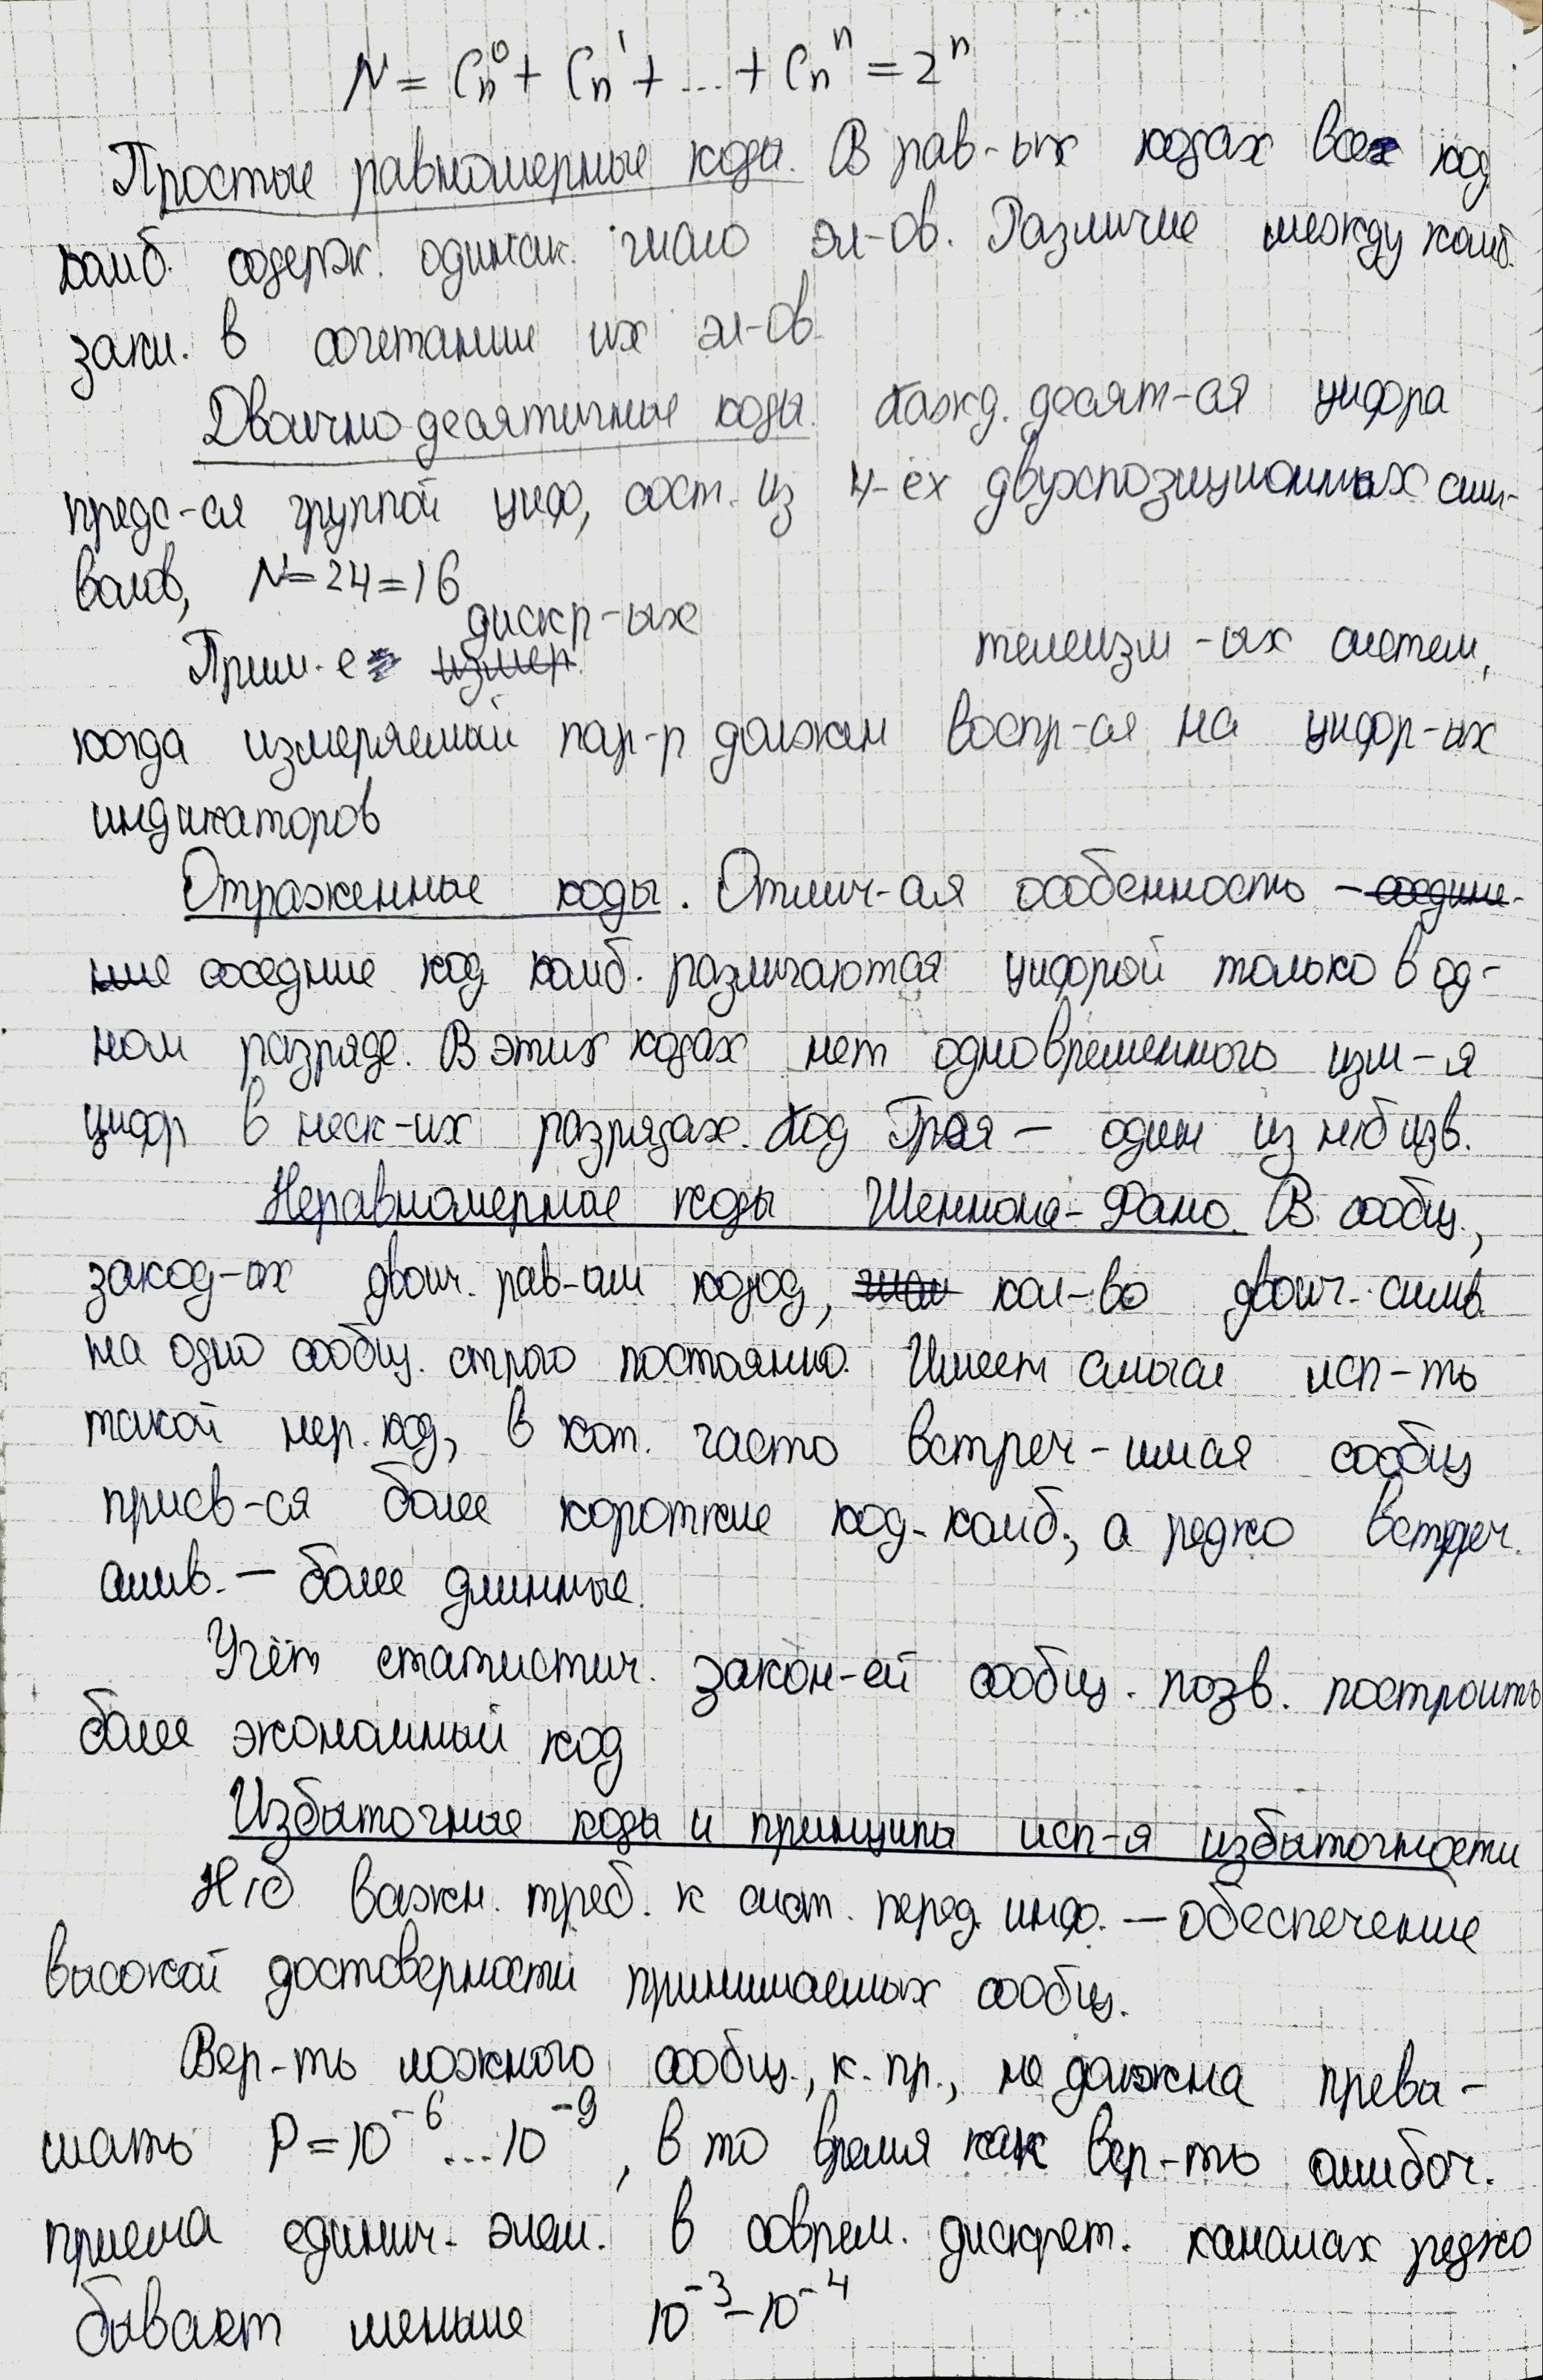 N = Cn⁰ + Cn¹ + ... + Cnⁿ = 2ⁿ
Простые равномерные коды. В рав-ых кодах все код
комб. содерж. одинак. число эл-ов. Различие между комб.
закл. в сочетании их эл-ов.
Двоично десятичные коды. Кажд. десят-ая цифра
предс-ся группой циф, сост. из 4-ёх двухпозиционных сим-
волов, N=24=16
дискр-ых
Прим-е измер. телеизм-ых систем,
когда измеряемый пар-р должен воспр-ся на цифр-ых
индикаторов
Отраженные коды. Отлич-ая особенность – соедине-
ние соседние код комб. различаются цифрой только в од-
ном разряде. В этих кодах нет одновременного изм-я
цифр в неск-их разрядах. Код Грая – один из н/б изв.
Неравномерные коды Шеннона-Фано. В сообщ.,
закод-ых двоич. рав-ым кодод, кол-во двоич. симв.
на одно сообщ. строго постоянно. Имеет смысл исп-ть
такой нер. код, в кот. часто встреч-имся сообщ
присв-ся более короткие код-комб., а редко встреч.
симв. – более длинные.
Учёт статистич. закон-ей сообщ. позв. построить
более экономный код
Избыточные коды и принципы исп-я избыточности
Н/б важн. треб. к сист. перед. инф. – обеспечение
высокой достоверности принимаемых сообщ.
Вер-ть ложного сообщ., к. пр., не должна превы-
шать P = 10⁻⁶...10⁻⁹, в то время как вер-ть ошибоч.
приема единич. элем. в соврем. дискрет. каналах редко
бывает меньше 10⁻³ – 10⁻⁴